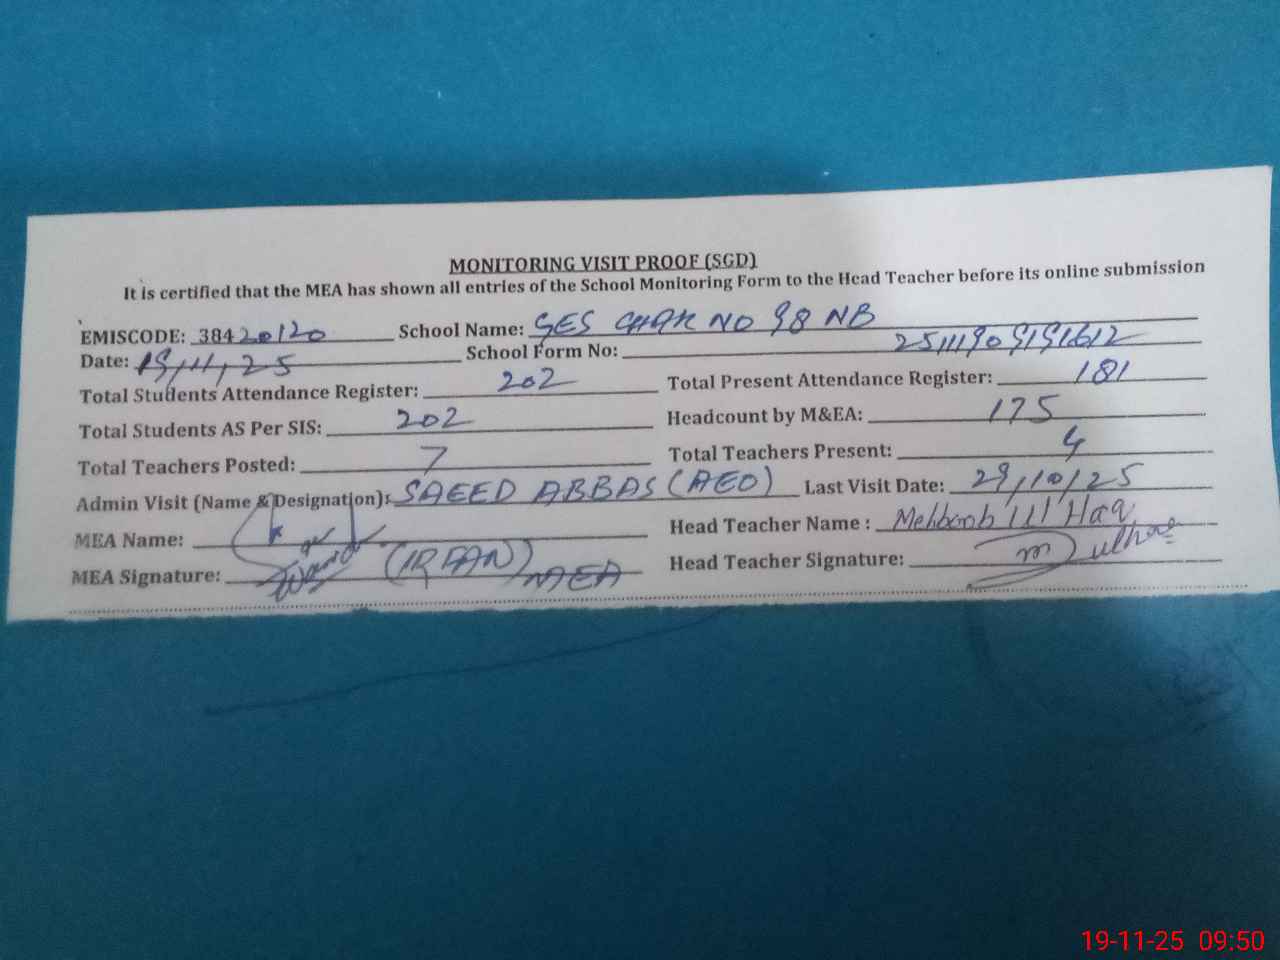 MONITORING VISIT PROOF (SGD)
It is certified that the MEA has shown all entries of the School Monitoring Form to the Head Teacher before its online submission
EMISCODE: 38420120 School Name: GES CHAK NO 98 NB
Date: 19,11,25 School Form No: 25111909191612
Total Students Attendance Register: 202 Total Present Attendance Register: 181
Total Students AS Per SIS: 202 Headcount by M&EA: 175
Total Teachers Posted: 7 Total Teachers Present: 4
Admin Visit (Name & Designation): SAEED ABBAS (AEO) Last Visit Date: 29/10/25
MEA Name: Head Teacher Name : Mehboob Ul Haq
MEA Signature: (IRFAN) MEA Head Teacher Signature:
19-11-25 09:50